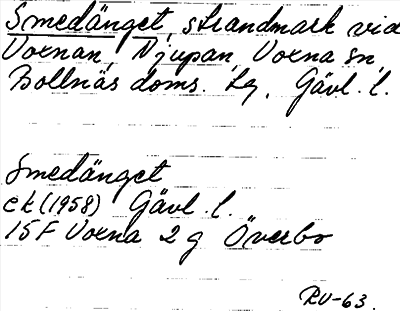 Smedänget, strandmark vid
Voxnan, Njupan, Voxna sn,
Bollnäs doms. lg, Gävl. l.
Smedänget
ek (1958) Gävl. l.
15F Voxna 2 g Överbo
RU-63.